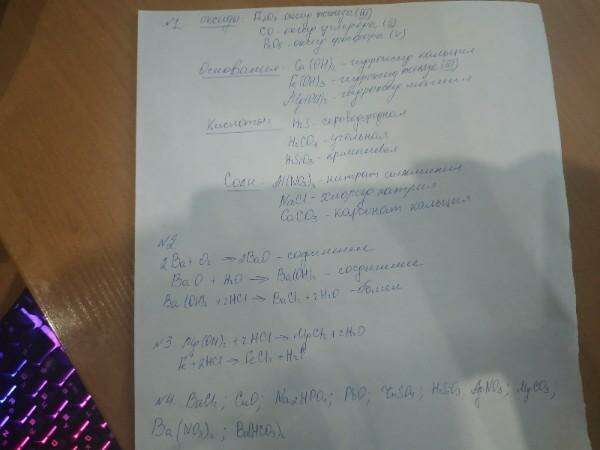 №1 Оксиды: Fe2O3 оксид железа (III)
CO - оксид углерода (II)
P2O5 - оксид фосфора (V)
Основания: Ca(OH)2 - гидроксид кальция
Fe(OH)3 - гидроксид железа (III)
Mg(OH)2 - гидроксид магния
Кислоты: H2S - сероводородная
H2CO3 - угольная
H2SiO3 - кремниевая
Соли: Al(NO3)3 - нитрат алюминия
NaCl - хлорид натрия
CaCO3 - карбонат кальция
№2
2Ba + O2 → 2BaO - соединение
BaO + H2O → Ba(OH)2 - соединение
Ba(OH)2 + 2HCl → BaCl2 + 2H2O - обмен
№3 Mg(OH)2 + 2HCl → MgCl2 + 2H2O
Fe + 2HCl → FeCl2 + H2↑
№4. BaCl2; CuO; Na2HPO4; PbO; ; ; AgNO3; MgCO3;
Ba(NO3)2; Ba(HCO3)2